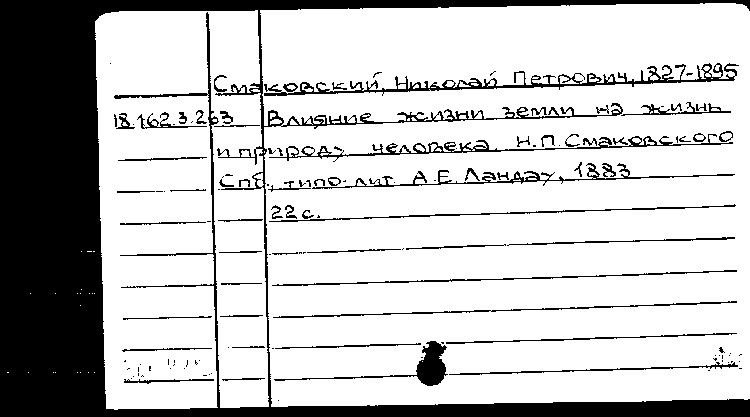 Смаковский, Николай Петрович, 1827-1895
18.162.3.263 Влияние жизни земли на жизнь
и природу человека. Н.П. Смаковского
Спб., типо-лит. А.Е. Ландау, 1883
22 с.